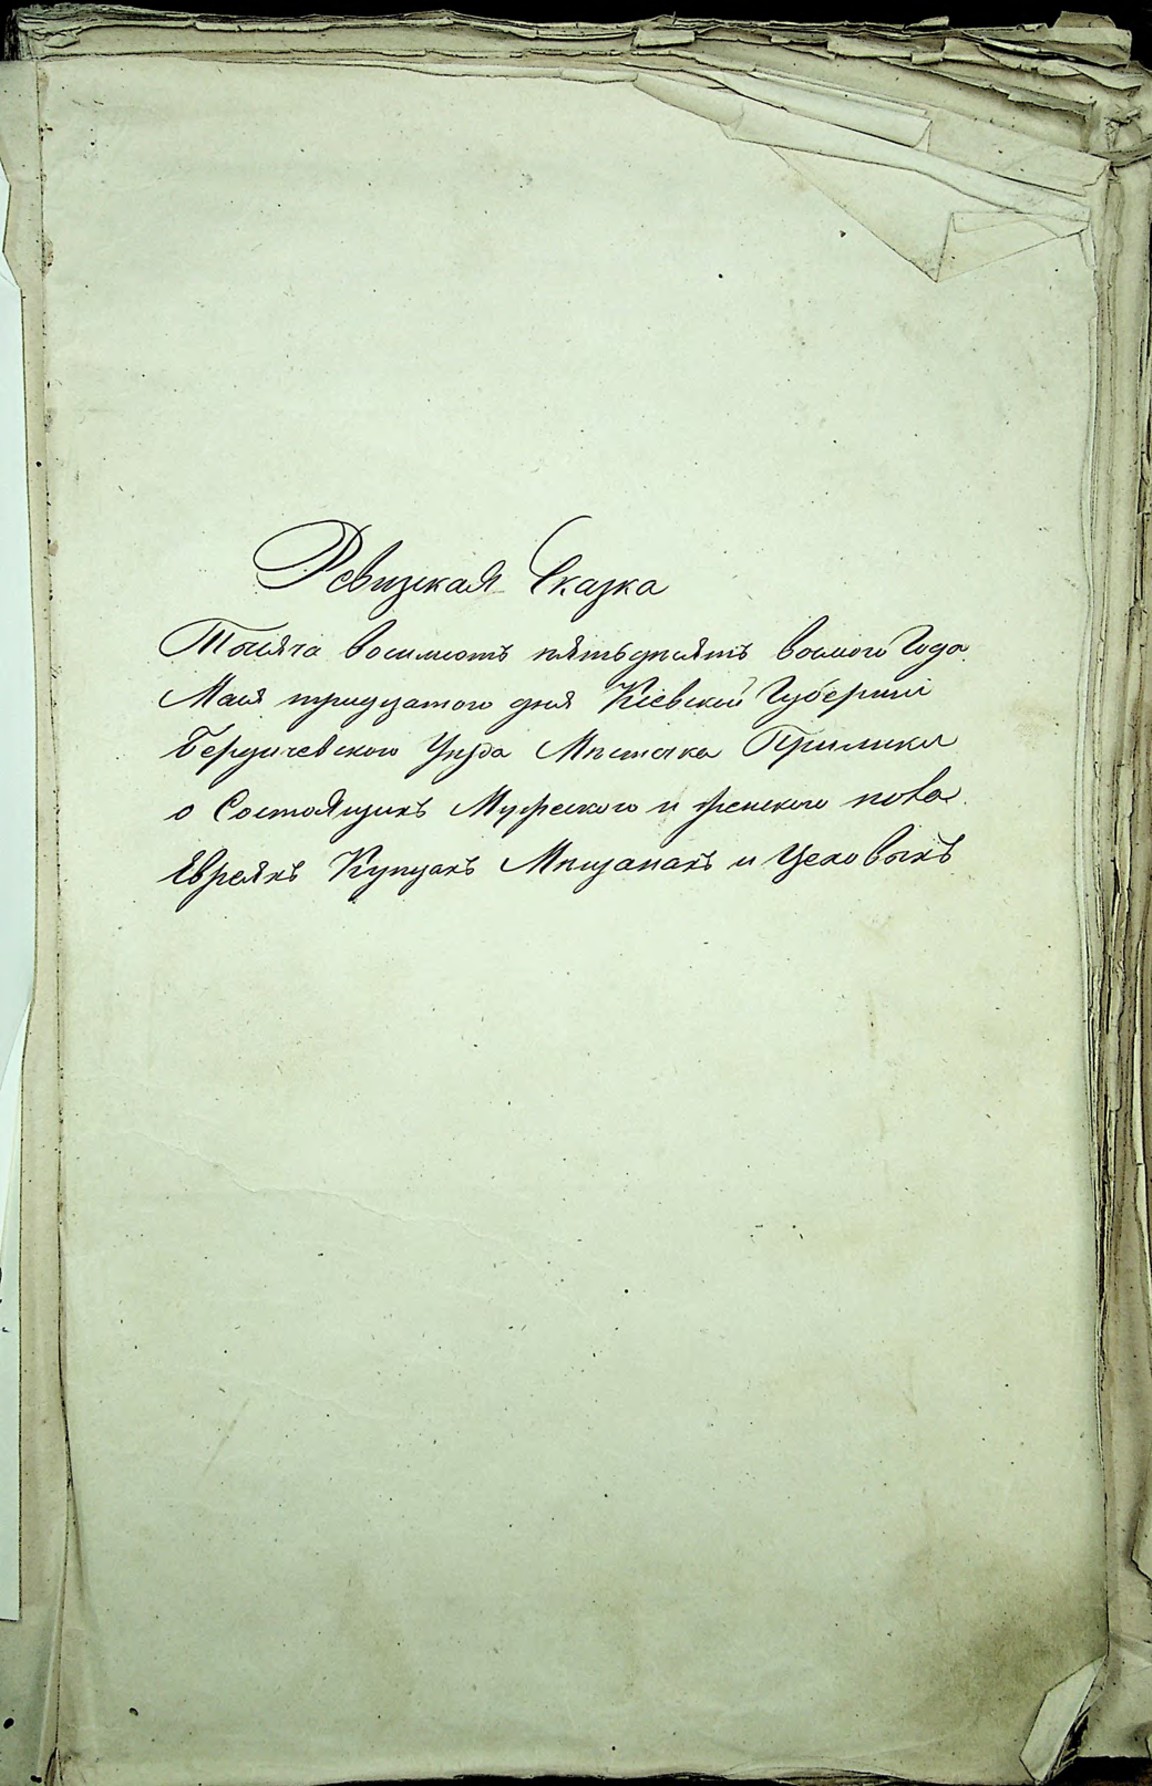 Ревизская Сказка
Тысяча восемьсотъ пятьдесятъ восмого Года
Мая тридцатого дня Кіевской Губерніи
Бердичевского Уѣзда Мѣстечка Прилики
о Состоящихъ Мужеского и женского пола
Евреяхъ Купцахъ Мѣщанахъ и Цеховыхъ